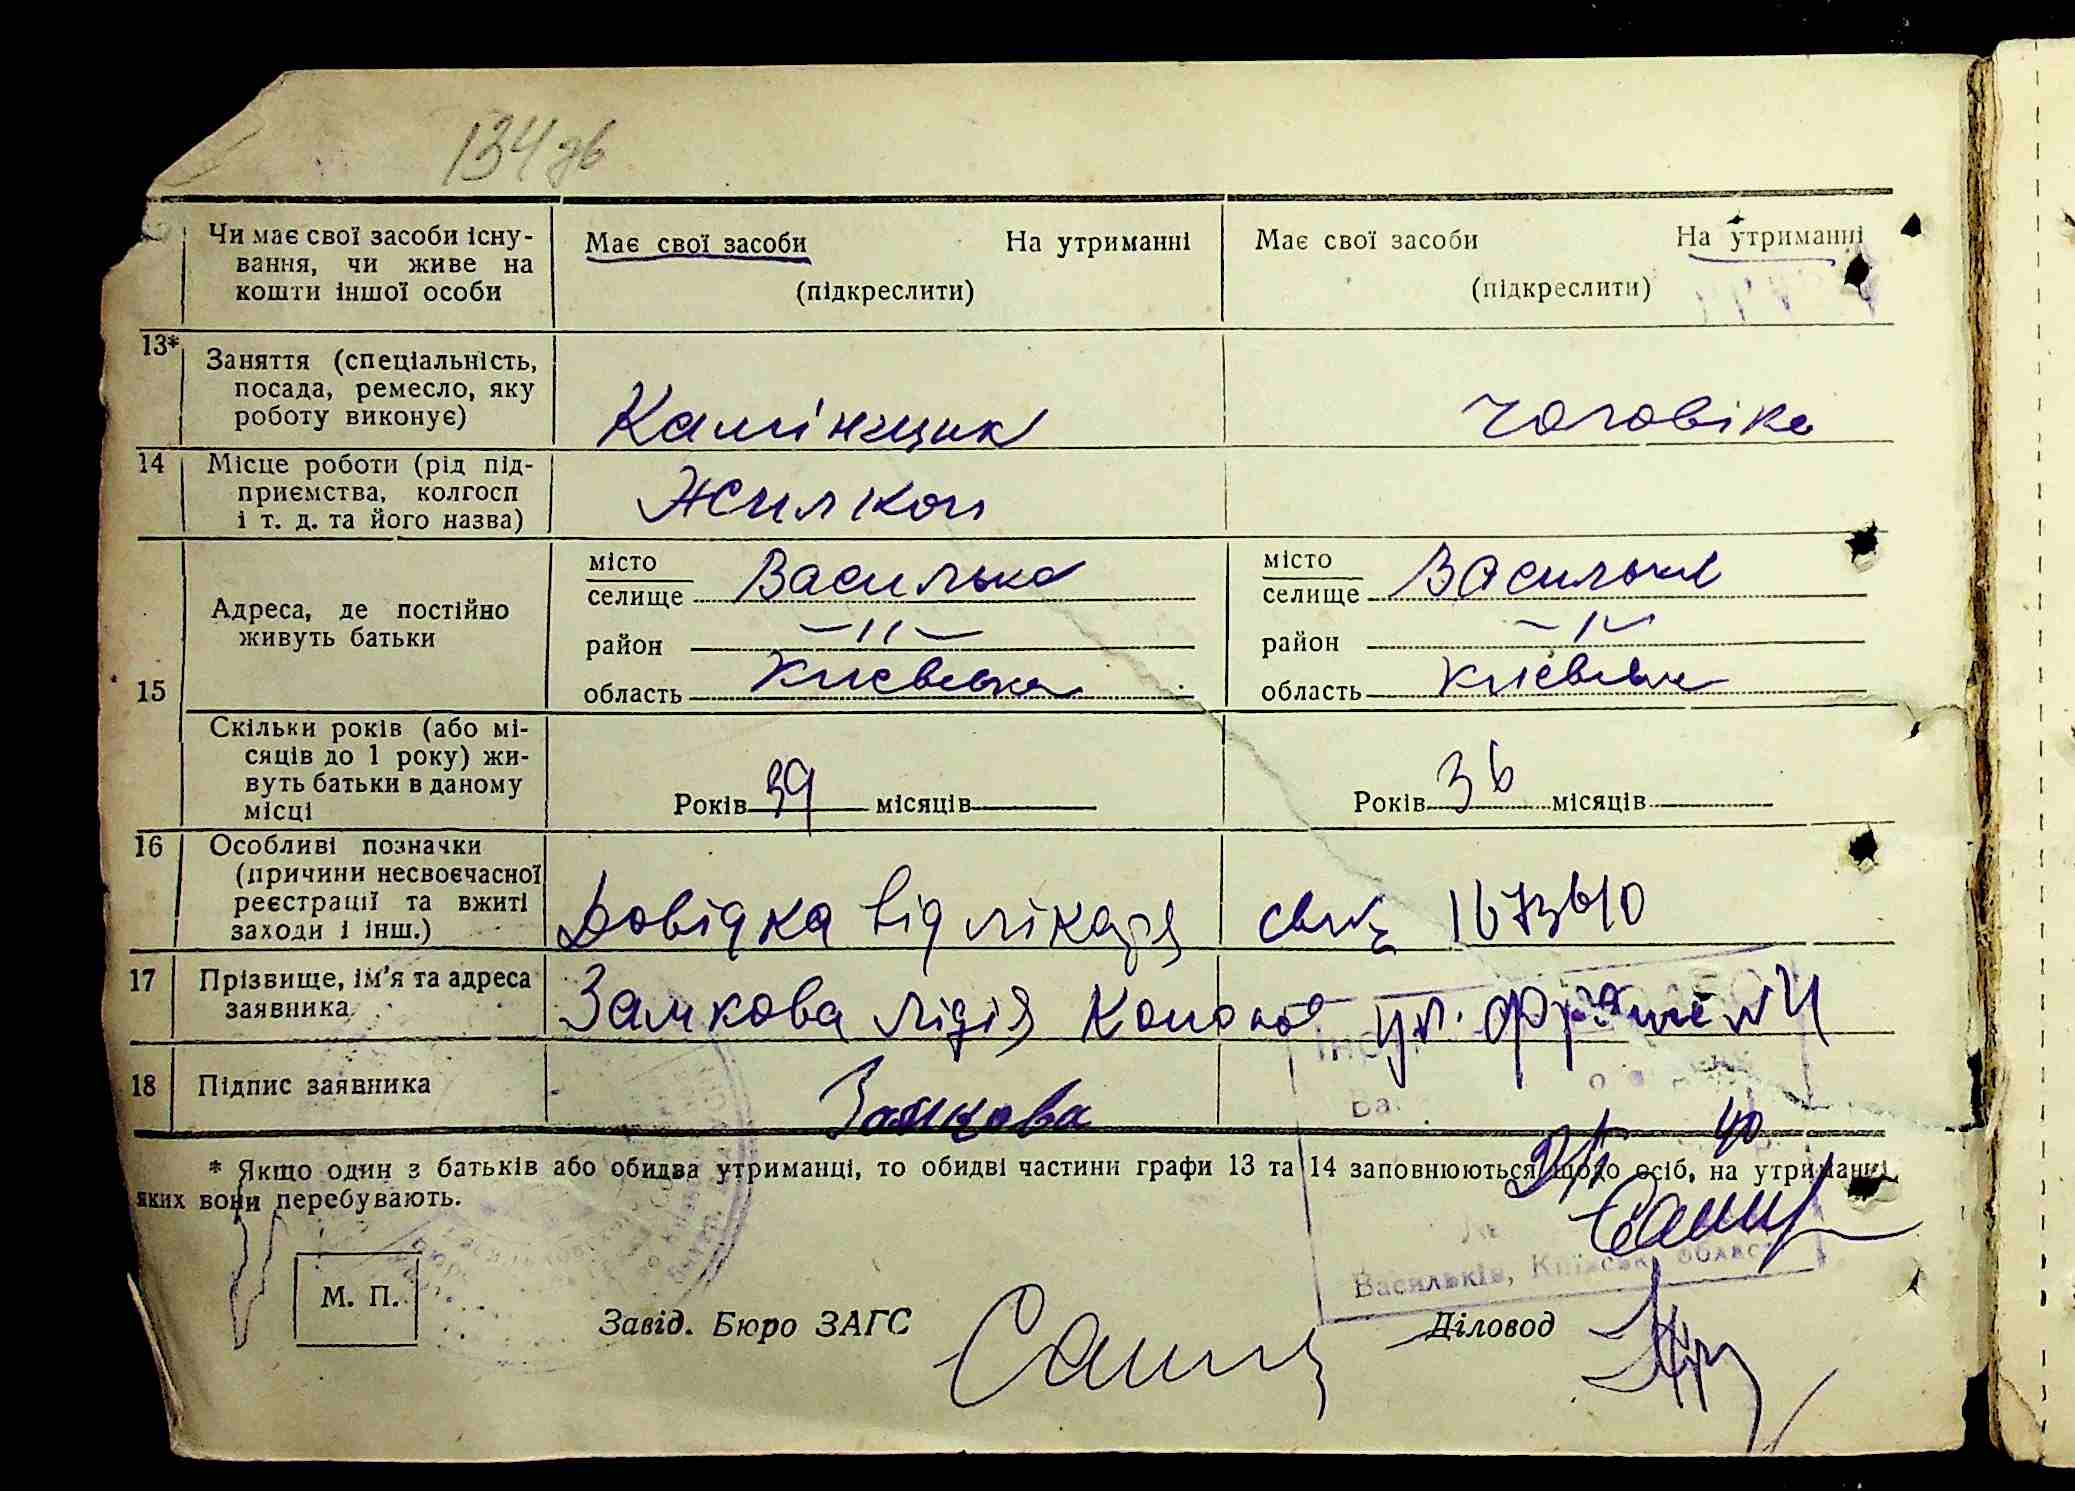 134 зв
Чи має свої засоби існу-
вання, чи живе на
кошти іншої особи
Має свої засоби На утриманні
(підкреслити)
Має свої засоби На утриманні
(підкреслити)
13*
Заняття (спеціальність,
посада, ремесло, яку
роботу виконує)
Камінщик
чоловіка
14
Місце роботи (рід під-
приємства, колгосп
і т. д. та його назва)
Жилкоп
15
Адреса, де постійно
живуть батьки
місто
селище Василько
район —//—
область Києвська
місто
селище Васильків
район —//—
область Києвська
Скільки років (або мі-
сяців до 1 року) жи-
вуть батьки в даному
місці
Років 39 місяців
Років 36 місяців
16
Особливі позначки
(причини несвоєчасної
реєстрації та вжиті
заходи і інш.)
Довідка від лікаря
1673610
17
Прізвище, ім'я та адреса
заявника
Замкова Лідія ул.
18
Підпис заявника
Замкова
* Якщо один з батьків або обидва утриманці, то обидві частини графи 13 та 14 заповнюються щодо осіб, на утриманні
яких вони перебувають.
Васильків, Київськ. област
М. П.
Завід. Бюро ЗАГС
Діловод